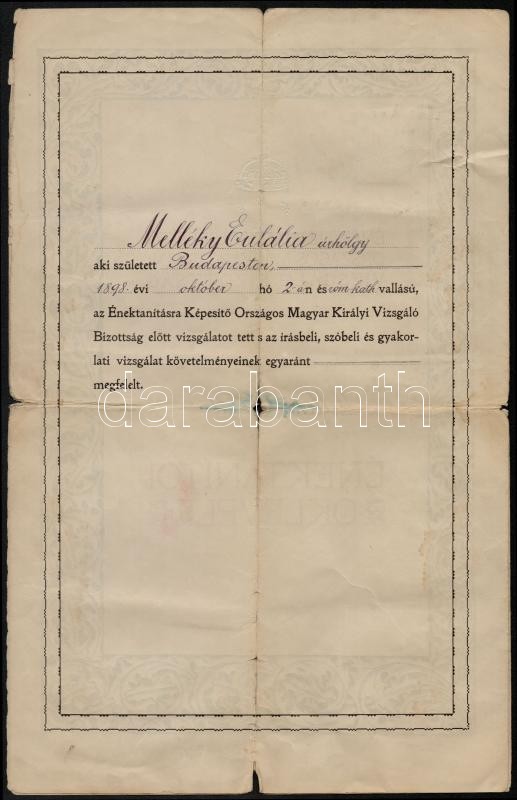 Melléky Eulália úrhölgy
aki született Budapesten,
1898. évi október hó 2-án és róm. kath. vallású,
az Énektanításra Képesítő Országos Magyar Királyi Vizsgáló
Bizottság előtt vizsgálatot tett s az írásbeli, szóbeli és gyakor-
lati vizsgálat követelményeinek egyaránt
megfelelt.
darabanth
ÉNEKTANÍTÓI
OKLEVÉL